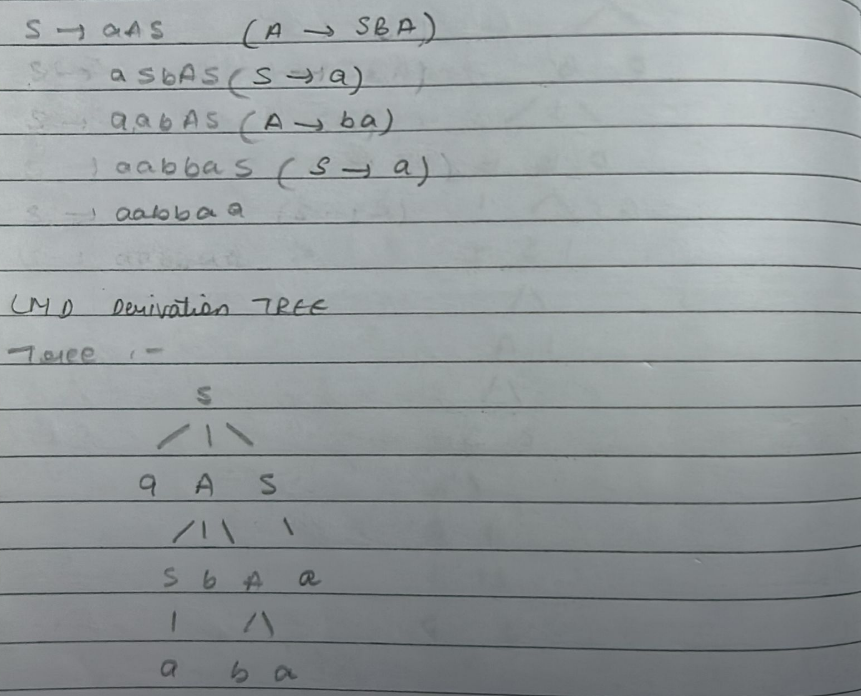 S → aAS (A → SBA)
asbAS (S → a)
aabAS (A → ba)
aabbas (S → a)
aabbaa
LMD Derivation TREE
Tree :-
S
/ | \
a A S
/ | \ \
S b A a
| / \
a b a